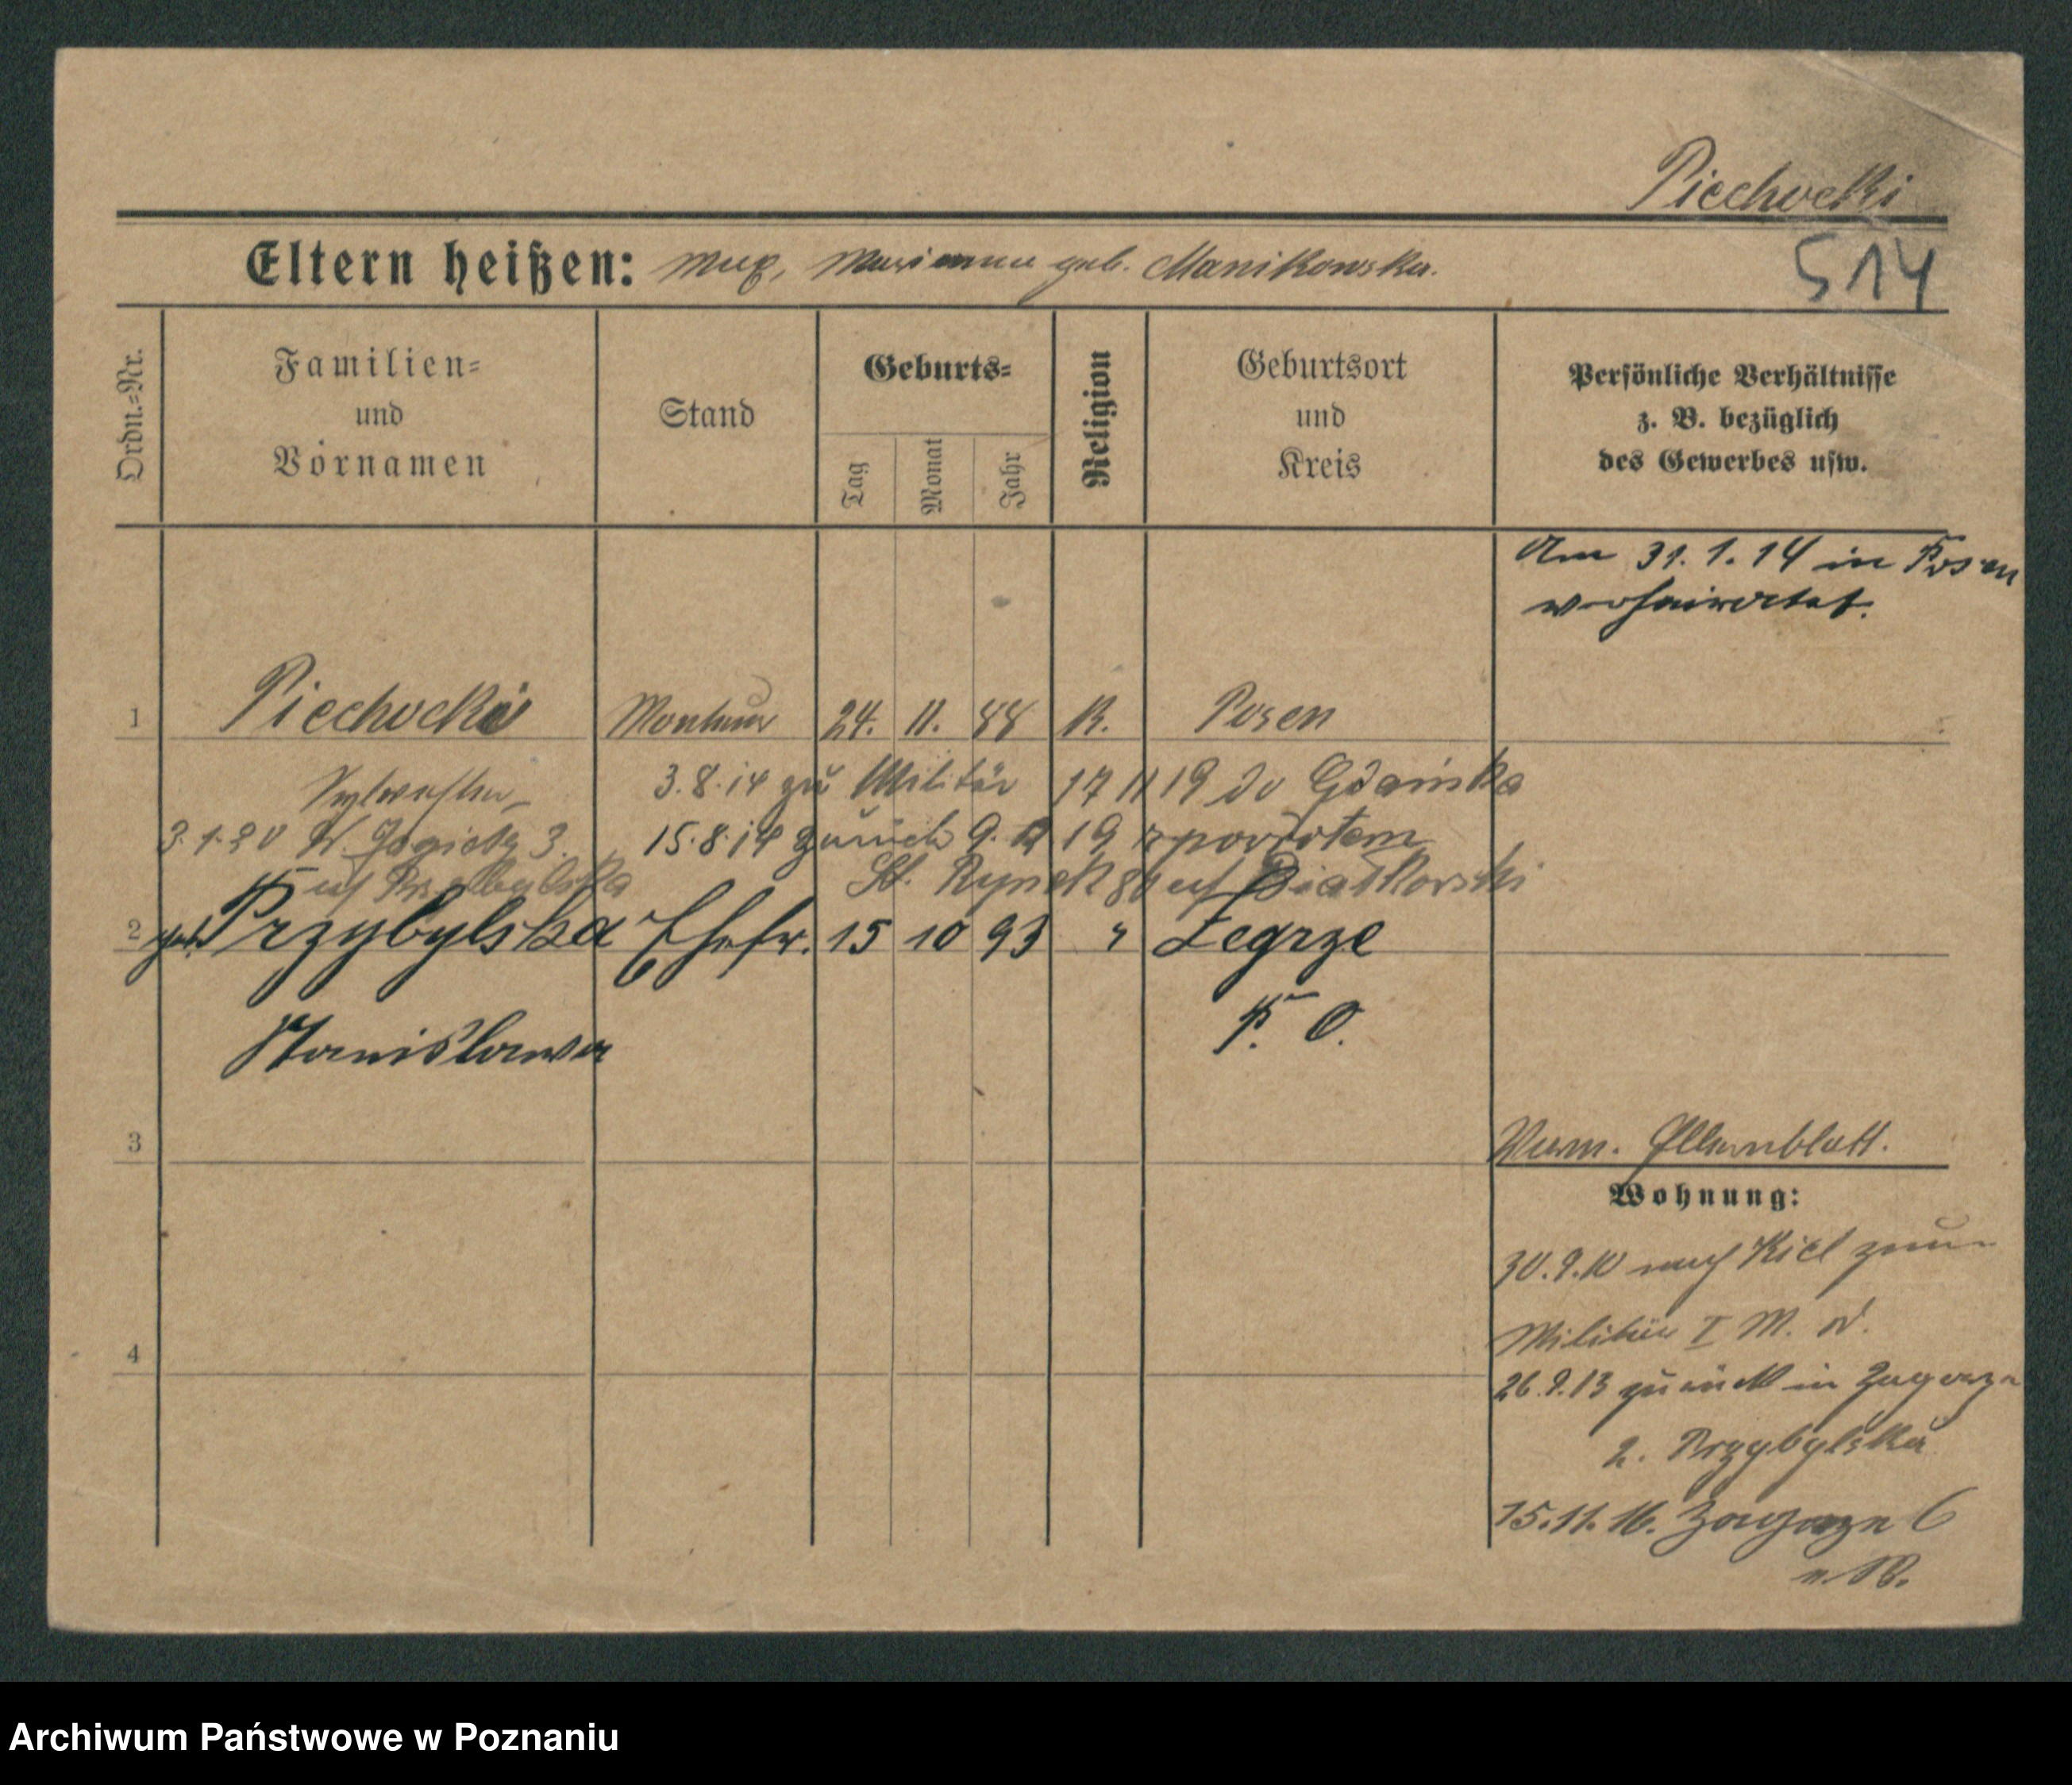 Piechocki
Eltern heißen: Max, Marianna geb. Manikowska.
514
Ordn.=Nr.
Familien=
und
Vornamen
Stand
Geburts=
Tag
Monat
Jahr
Religion
Geburtsort
und
Kreis
Persönliche Verhältnisse
z. B. bezüglich
des Gewerbes usw.
Am 31.1.14 in Posen
verheiratet.
1 Piechocki Monteur 24. 11. 88 K. Posen
Sylvester
3.8.14 zu Militär 17 11 19 do Gdańska
3.1.20 3.
15.8.14 zurück 9. 19 zpowrotem
Przybylska
St. Rynek 80 Białkowski
2 geb. Przybylska Ehefr. 15 10 93 " Zegrze
Stanislawa
P. O.
3
Elternblatt.
Wohnung:
30.9.10 nach Kiel zum
Militär I M. D.
4
26.9.13 zurück in Zagorze
2. Przybylska
15.11.16. Zagorze 6
Archiwum Państwowe w Poznaniu